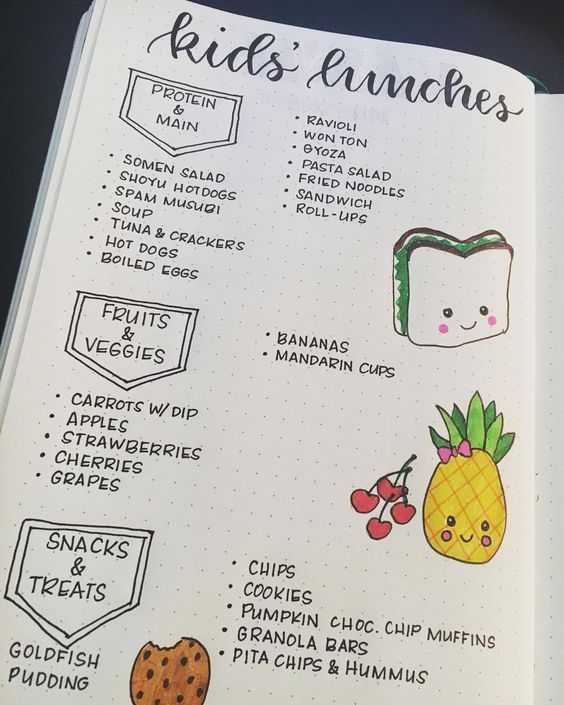 kids' lunches
PROTEIN
&
MAIN
• SOMEN SALAD
• SHOYU HOTDOGS
• SPAM MUSUBI
• SOUP
• TUNA & CRACKERS
• HOT DOGS
• BOILED EGGS
• RAVIOLI
• WON TON
• GYOZA
• PASTA SALAD
• FRIED NOODLES
• SANDWICH
• ROLL-UPS
FRUITS
&
VEGGIES
• CARROTS W/DIP
• APPLES
• STRAWBERRIES
• CHERRIES
• GRAPES
• BANANAS
• MANDARIN CUPS
SNACKS
&
TREATS
GOLDFISH
PUDDING
• CHIPS
• COOKIES
• PUMPKIN CHOC. CHIP MUFFINS
• GRANOLA BARS
• PITA CHIPS & HUMMUS